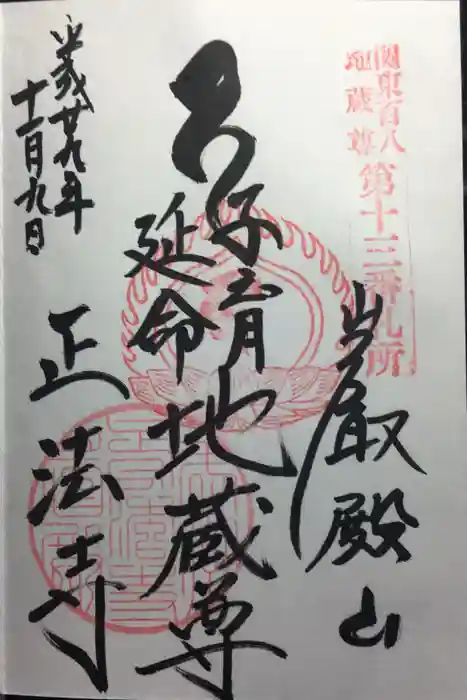 關東百八
地蔵尊
第十三番札所
巌殿山
子育
延命
地蔵尊
正法寺
平成廿九年
十一月九日